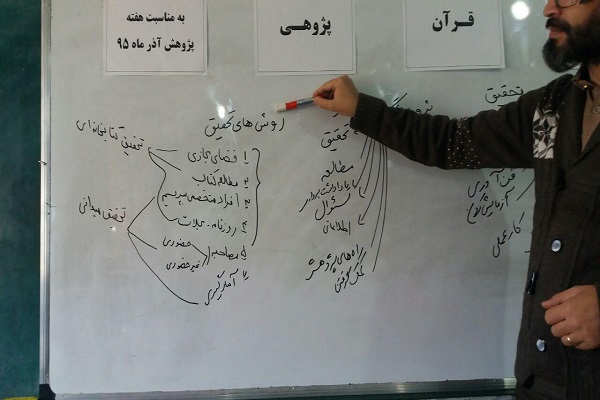 قـرآن
پژوهــی
به مناسبت هفته
پژوهش آذر ماه ۹۵
تحقیق
فن آوری
آزمایش
کار عملی
تحقیق
مطالعه
یادداشت برداری
سئوال
اطلاعاتی
راه‌های پژوهش
کمک گرفتن
روش های تحقیق
۱ فضای مجازی
۲ مطالعه کتاب
۳ افراد متخصص بپرسیم
۴ روزنامه - مجلات
۵ مصاحبه حضوری
غیر حضوری
۶ آمارگیری
تحقیق کتابخانه‌ای
تحقیق میدانی